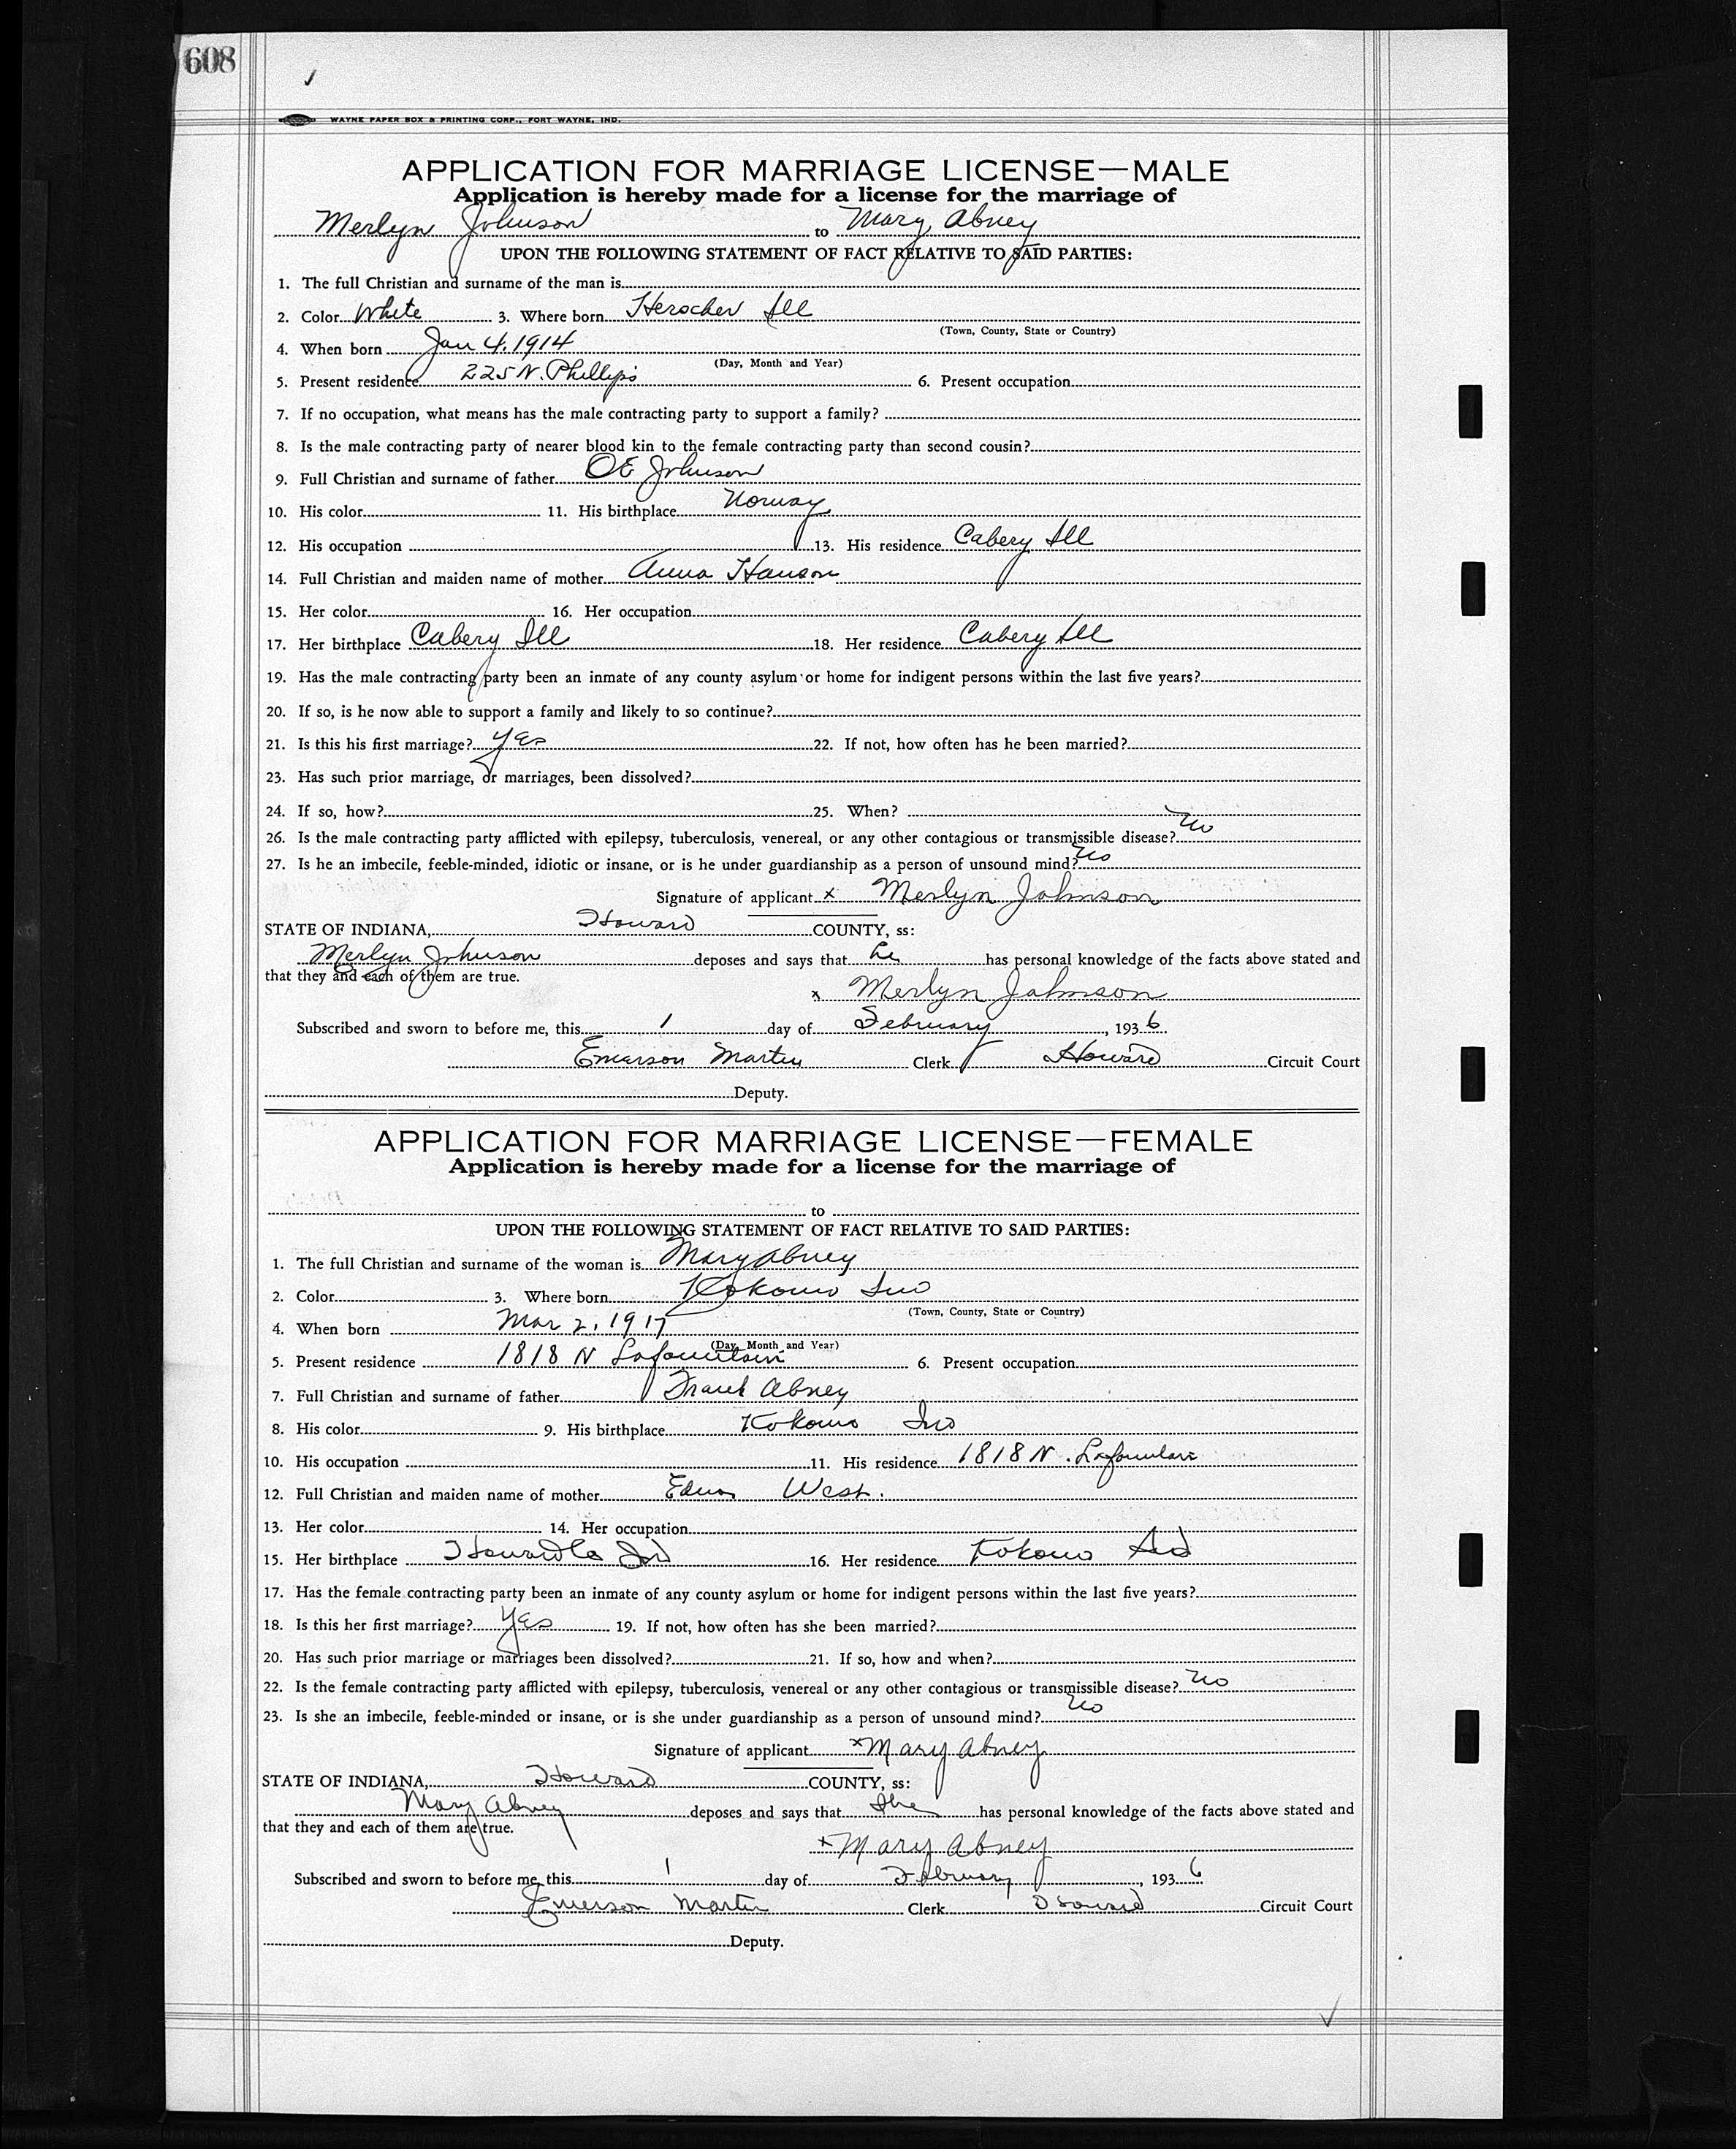 608
WAYNE PAPER BOX & PRINTING CORP., FORT WAYNE, IND.
APPLICATION FOR MARRIAGE LICENSE—MALE
Application is hereby made for a license for the marriage of
Merlyn Johnson to Mary Abney
UPON THE FOLLOWING STATEMENT OF FACT RELATIVE TO SAID PARTIES:
1. The full Christian and surname of the man is
2. Color White 3. Where born Herscher Ill
(Town, County, State or Country)
4. When born Jan 4. 1914
(Day, Month and Year)
5. Present residence 225 N. Phillips 6. Present occupation
7. If no occupation, what means has the male contracting party to support a family?
8. Is the male contracting party of nearer blood kin to the female contracting party than second cousin?
9. Full Christian and surname of father OE Johnson
10. His color 11. His birthplace Norway
12. His occupation 13. His residence Cabery Ill
14. Full Christian and maiden name of mother Anna Hanson
15. Her color 16. Her occupation
17. Her birthplace Cabery Ill 18. Her residence Cabery Ill
19. Has the male contracting party been an inmate of any county asylum or home for indigent persons within the last five years?
20. If so, is he now able to support a family and likely to so continue?
21. Is this his first marriage? yes 22. If not, how often has he been married?
23. Has such prior marriage, or marriages, been dissolved?
24. If so, how? 25. When?
26. Is the male contracting party afflicted with epilepsy, tuberculosis, venereal, or any other contagious or transmissible disease? no
27. Is he an imbecile, feeble-minded, idiotic or insane, or is he under guardianship as a person of unsound mind? no
Signature of applicant x Merlyn Johnson
STATE OF INDIANA, Howard COUNTY, ss:
Merlyn Johnson deposes and says that he has personal knowledge of the facts above stated and
that they and each of them are true.
x Merlyn Johnson
Subscribed and sworn to before me, this 1 day of February, 1936
Emerson Martin Clerk Howard Circuit Court
Deputy.
APPLICATION FOR MARRIAGE LICENSE—FEMALE
Application is hereby made for a license for the marriage of
to
UPON THE FOLLOWING STATEMENT OF FACT RELATIVE TO SAID PARTIES:
1. The full Christian and surname of the woman is Mary Abney
2. Color 3. Where born Kokomo Ind
(Town, County, State or Country)
4. When born Mar 2, 1917
(Day, Month and Year)
5. Present residence 1818 N Lafountain 6. Present occupation
7. Full Christian and surname of father Frank Abney
8. His color 9. His birthplace Kokomo Ind
10. His occupation 11. His residence 1818 N. Lafountain
12. Full Christian and maiden name of mother Edna West.
13. Her color 14. Her occupation
15. Her birthplace Howard Co Ind 16. Her residence Kokomo Ind
17. Has the female contracting party been an inmate of any county asylum or home for indigent persons within the last five years?
18. Is this her first marriage? yes 19. If not, how often has she been married?
20. Has such prior marriage or marriages been dissolved? 21. If so, how and when?
22. Is the female contracting party afflicted with epilepsy, tuberculosis, venereal or any other contagious or transmissible disease? no
23. Is she an imbecile, feeble-minded or insane, or is she under guardianship as a person of unsound mind? no
Signature of applicant x Mary Abney
STATE OF INDIANA, Howard COUNTY, ss:
Mary Abney deposes and says that she has personal knowledge of the facts above stated and
that they and each of them are true.
x Mary Abney
Subscribed and sworn to before me, this 1 day of February, 1936
Emerson Martin Clerk Howard Circuit Court
Deputy.